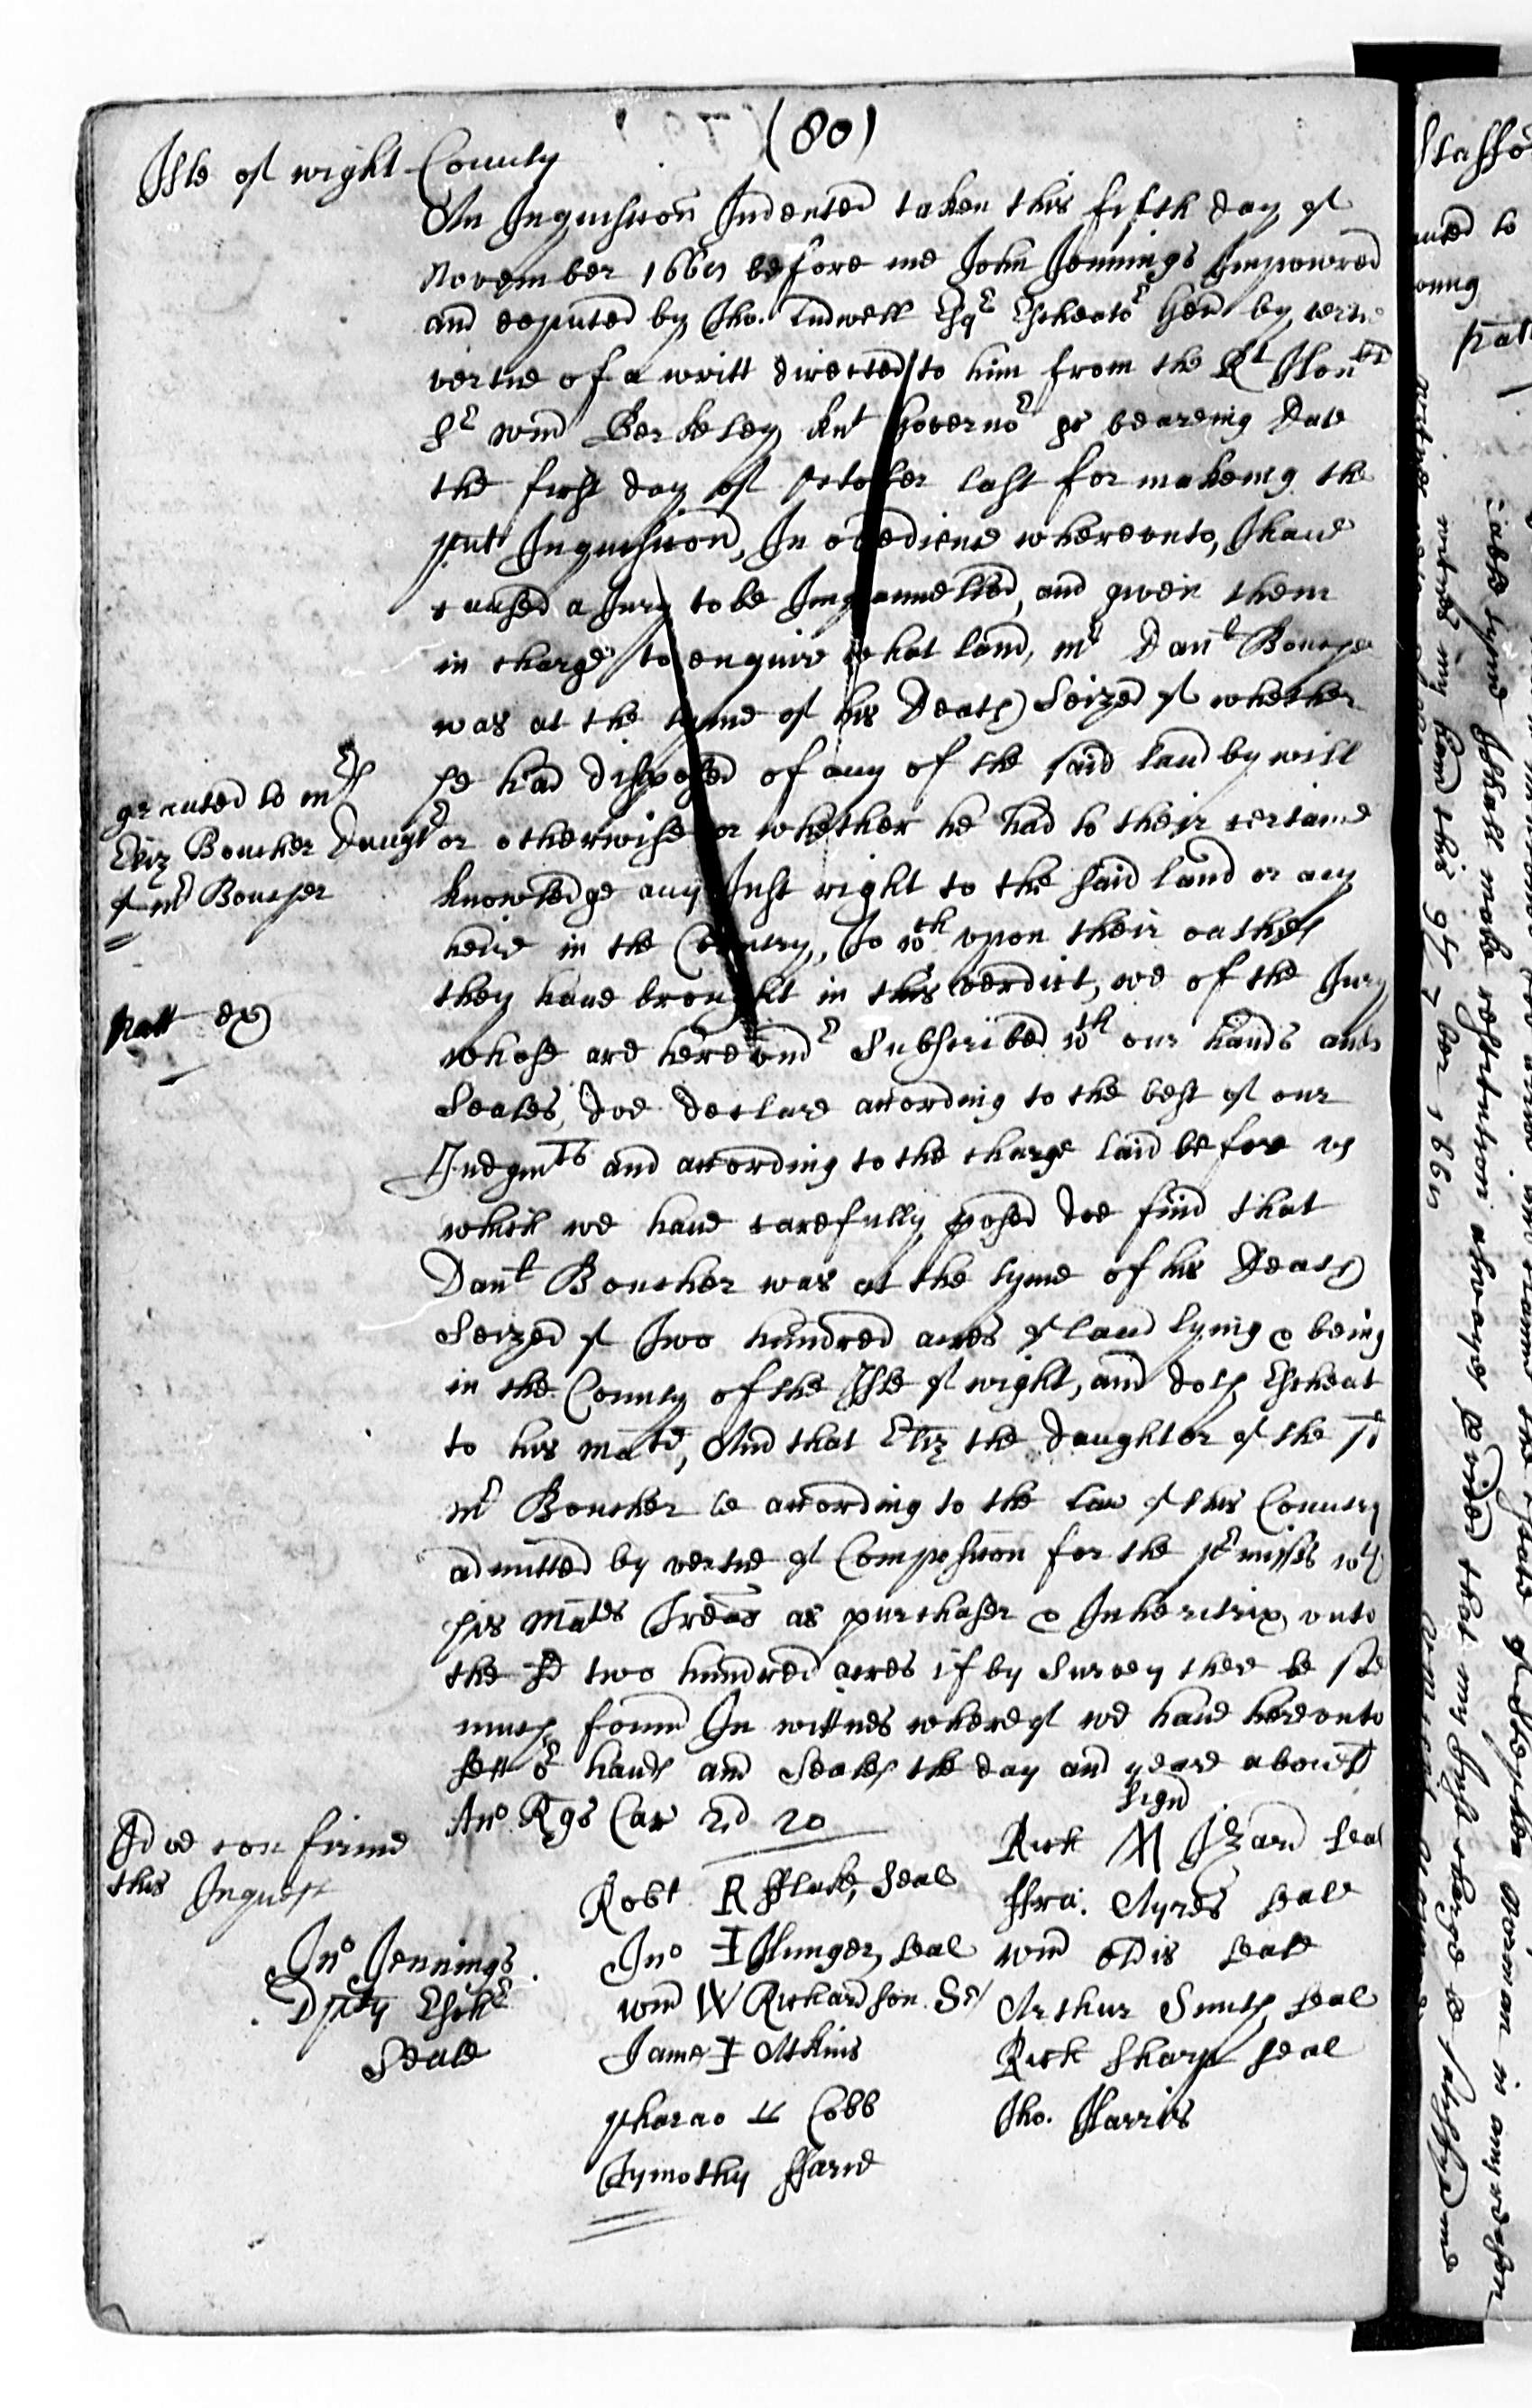 (80)
Isle of wight County
An Inquisicon Indented taken this fifth day of
November 1668 before me John Jennings Impowred
and deputed by Tho. Ludwell Esqr Escheator Genll by
vertue of a writt directed to him from the Rt Honble
Sr Wm Berkeley Knt Governor &c beareing date
the first day of October last for makeing the
psnt Inquisicon, In obedience whereunto, I have
caused a Jury to be Impannelled, and given them
in charge to enquire what land, mr Danl Boucher
was at the tyme of his Death Seized of whether
he had disposed of any of the said land by will
or otherwise or whether he had to their certaine
knowledge any Just right to the said land or any
heire in the Country, To wch upon their oathes
they have brought in this verdict, we of the Jury
whose are hereundr Subscribed wth our hands and
Seales, doe declare according to the best of our
Judgmts and according to the charge laid before us
which we have carefully posed doe find that
Danl Boucher was at the tyme of his Death
Seized of Two hundred acres of land lying & being
in the County of the Isle of wight, and doth Escheat
to his matie, And that Eliz the daughter of the sd
mr Boucher be according to the law of this Country
admitted by vertue of Composicon for the prmisses wth
his Maties Treas as purchaser & Inheritrix unto
the sd two hundred acres if by Survey there be soe
much found In wittnes whereof we have hereunto
sett or hands and Seales the day and yeare abovesd
Ano Rgs Car 2d 20
granted to mrs
Eliz Boucher Daughtr
of mr Boucher
Patt ex
And we confirme
this Inquest
Jno Jennings
Dpty Eschr
Seale
Robt R Flake, Seal
Jno I Munger, Seal
Wm W Richardson. Sel
James I Atkins
Pharao Cobb
Tymothy ffarne
Sign
Rich M Izard Seal
ffra. Ayres Seale
Wm Odis Seale
Arthur Smith Seal
Rich Sharpe Seal
Tho. Harris